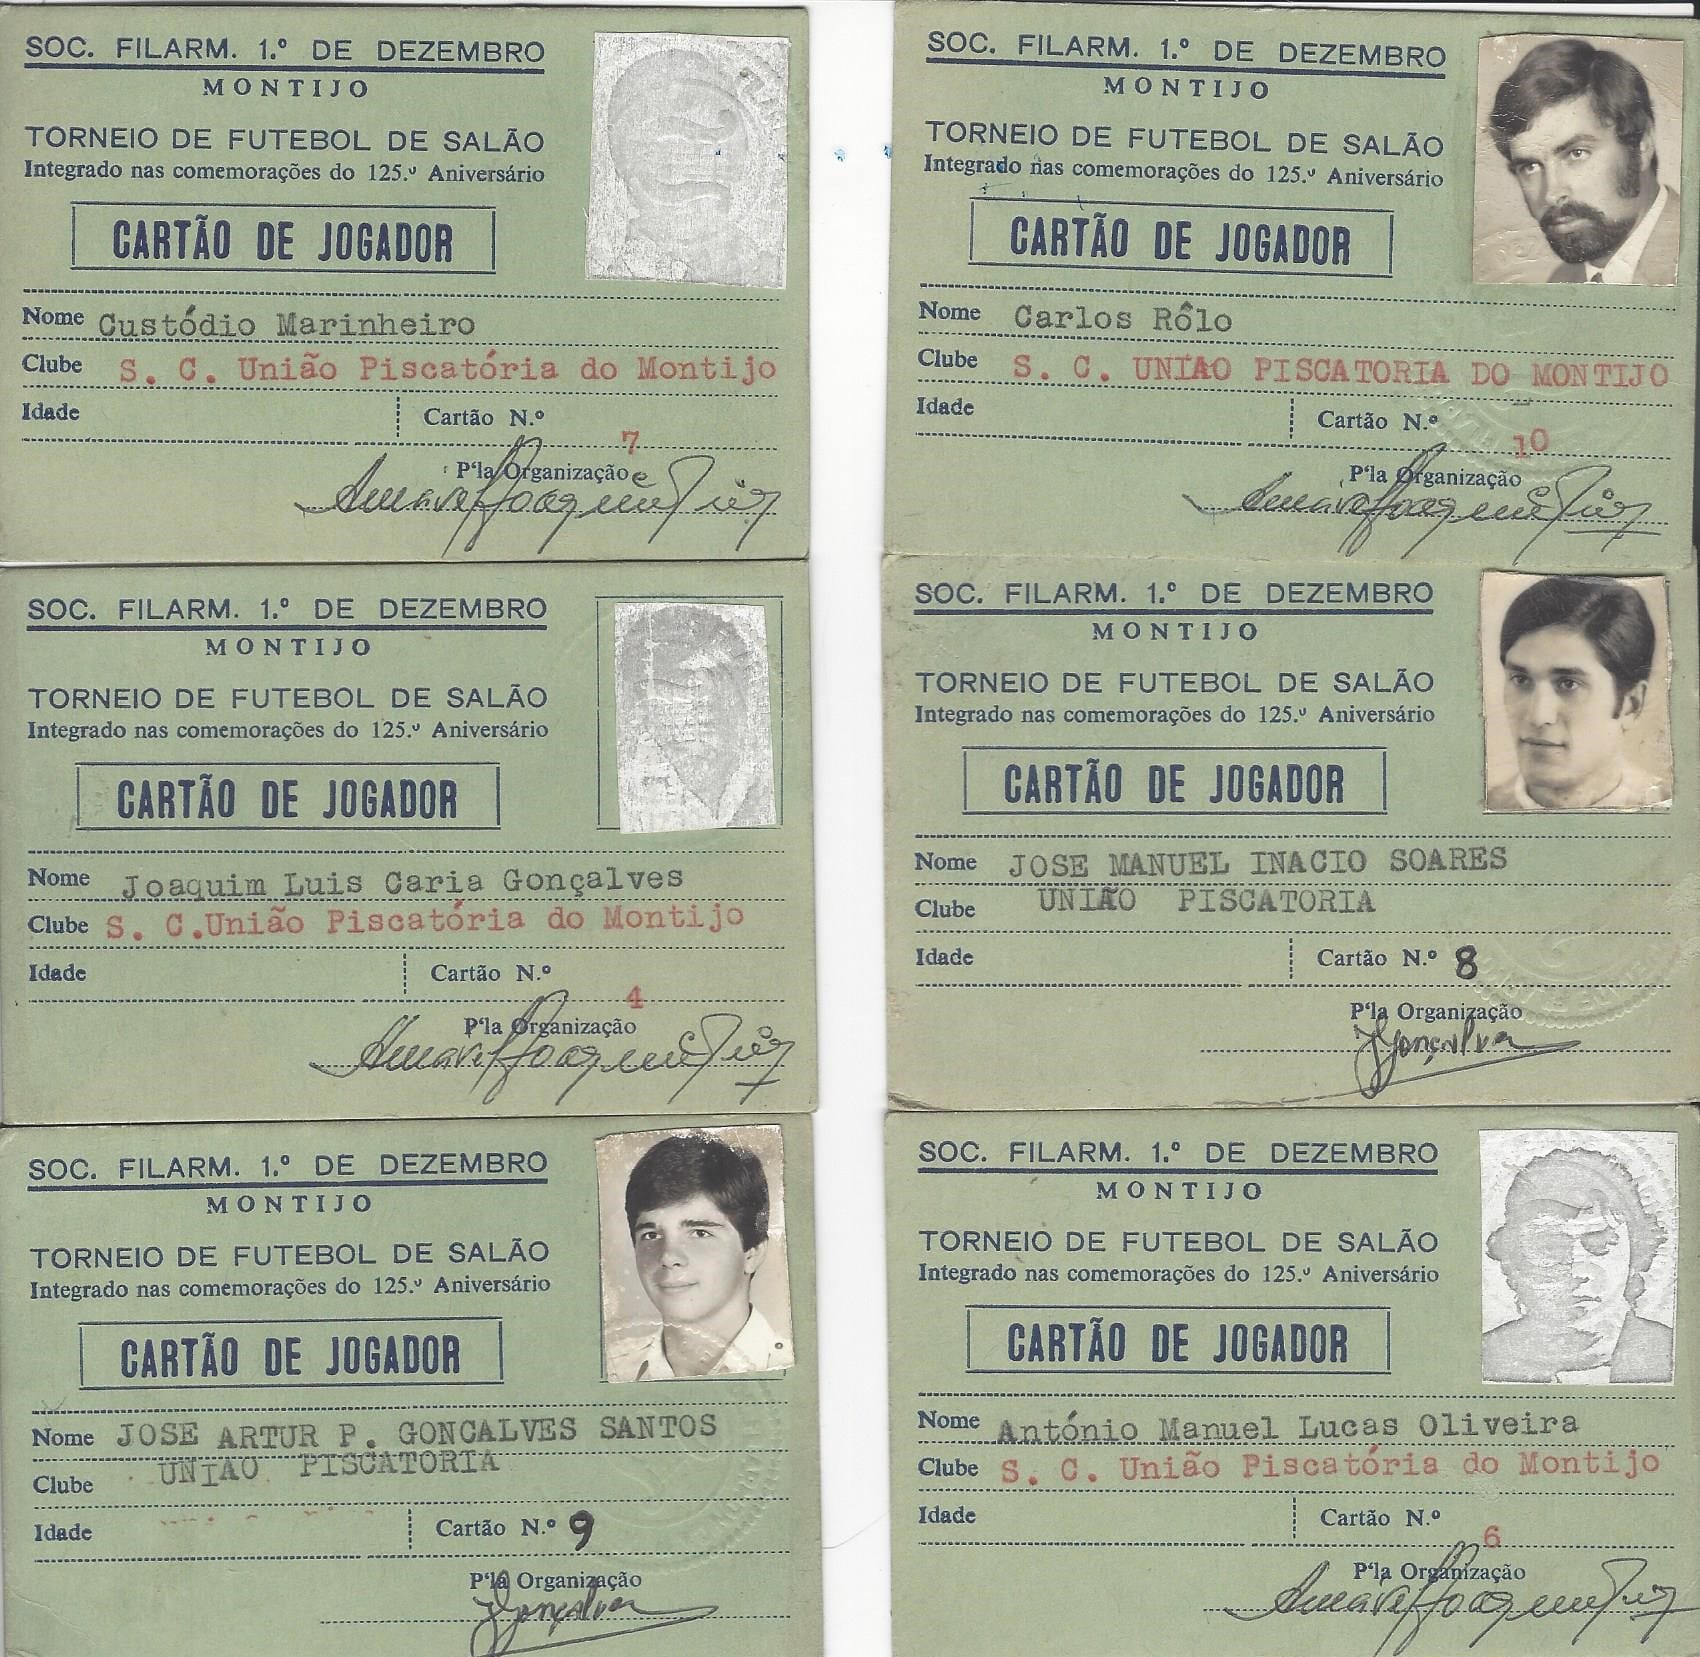 SOC. FILARM. 1.º DE DEZEMBRO
MONTIJO
TORNEIO DE FUTEBOL DE SALÃO
Integrado nas comemorações do 125.º Aniversário
CARTÃO DE JOGADOR
Nome Custódio Marinheiro
Clube S. C. União Piscatória do Montijo
Idade Cartão N.º 7
P'la Organização
SOC. FILARM. 1.º DE DEZEMBRO
MONTIJO
TORNEIO DE FUTEBOL DE SALÃO
Integrado nas comemorações do 125.º Aniversário
CARTÃO DE JOGADOR
Nome Carlos Rôlo
Clube S. C. UNIAO PISCATORIA DO MONTIJO
Idade Cartão N.º 10
P'la Organização
SOC. FILARM. 1.º DE DEZEMBRO
MONTIJO
TORNEIO DE FUTEBOL DE SALÃO
Integrado nas comemorações do 125.º Aniversário
CARTÃO DE JOGADOR
Nome Joaquim Luis Caria Gonçalves
Clube S. C.União Piscatória do Montijo
Idade Cartão N.º 4
P'la Organização
SOC. FILARM. 1.º DE DEZEMBRO
MONTIJO
TORNEIO DE FUTEBOL DE SALÃO
Integrado nas comemorações do 125.º Aniversário
CARTÃO DE JOGADOR
Nome JOSE MANUEL INACIO SOARES
Clube UNIÃO PISCATORIA
Idade Cartão N.º 8
P'la Organização
SOC. FILARM. 1.º DE DEZEMBRO
MONTIJO
TORNEIO DE FUTEBOL DE SALÃO
Integrado nas comemorações do 125.º Aniversário
CARTÃO DE JOGADOR
Nome JOSE ARTUR P. GONCALVES SANTOS
Clube UNIAO PISCATORIA
Idade Cartão N.º 9
P'la Organização
SOC. FILARM. 1.º DE DEZEMBRO
MONTIJO
TORNEIO DE FUTEBOL DE SALÃO
Integrado nas comemorações do 125.º Aniversário
CARTÃO DE JOGADOR
Nome António Manuel Lucas Oliveira
Clube S. C. União Piscatória do Montijo
Idade Cartão N.º 6
P'la Organização